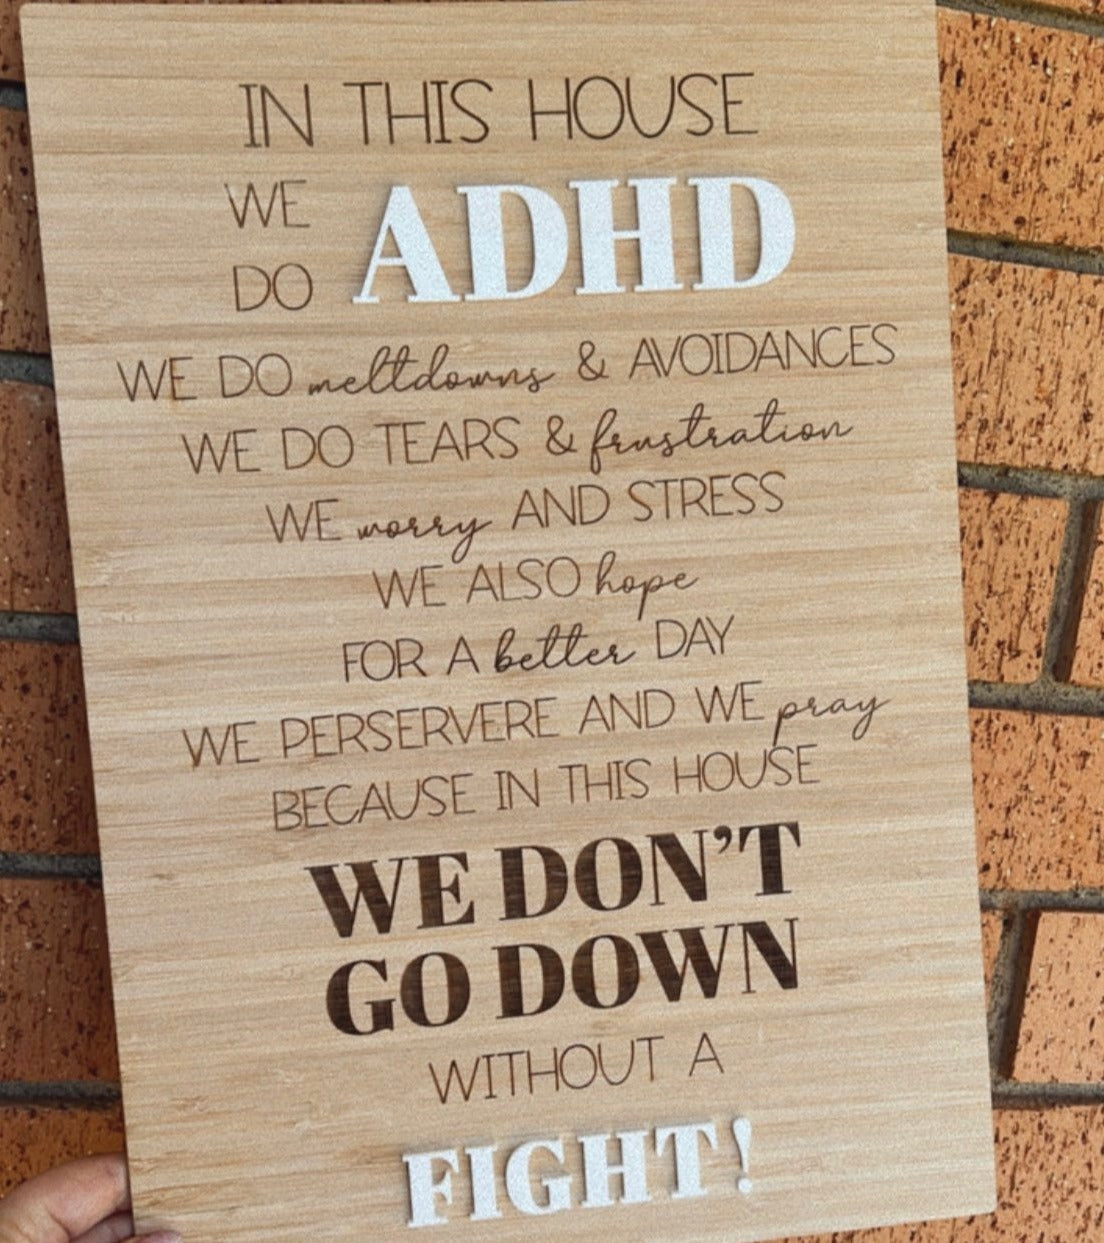 IN THIS HOUSE
WE
DO ADHD
WE DO meltdowns & AVOIDANCES
WE DO TEARS & frustration
WE worry AND STRESS
WE ALSO hope
FOR A better DAY
WE PERSERVERE AND WE pray
BECAUSE IN THIS HOUSE
WE DON'T
GO DOWN
WITHOUT A
FIGHT!